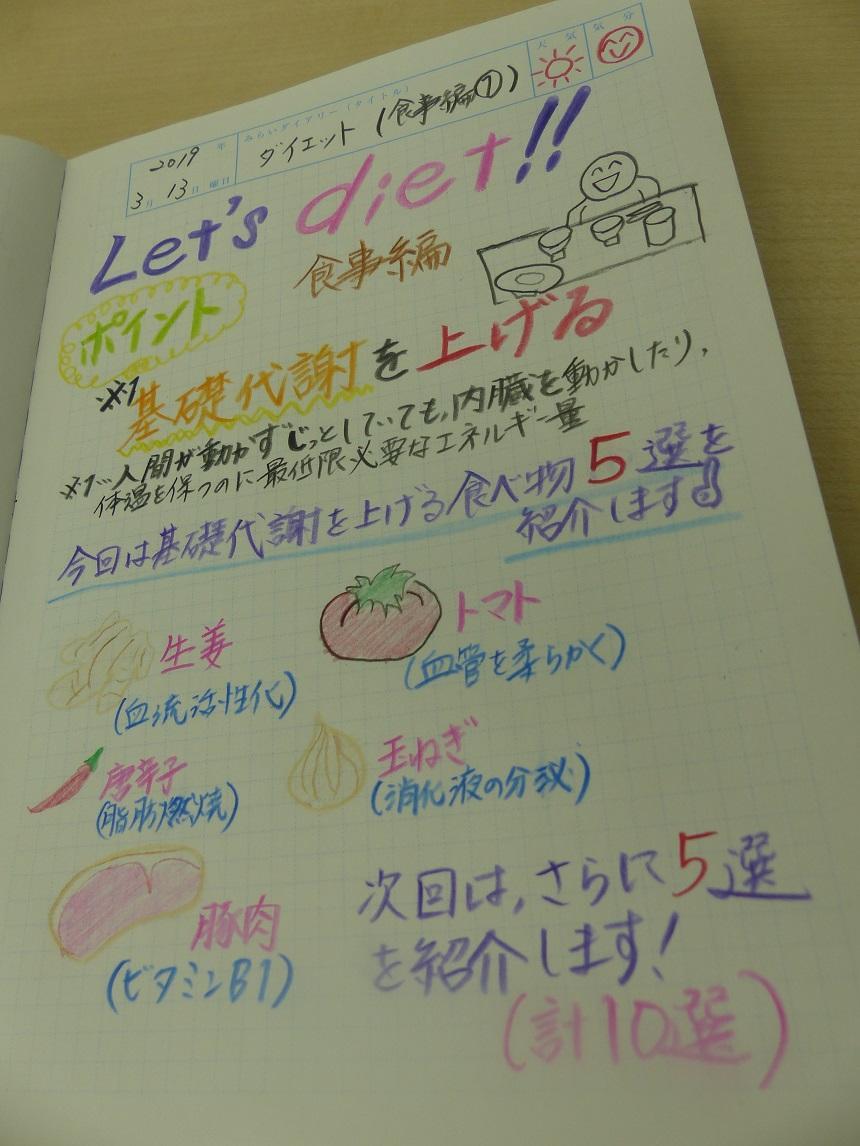 天気 気分
2019年 みらいダイアリー(タイトル)
3月13日 曜日 ダイエット (食事編①)
Let's diet!!
食事編
ポイント
※1 基礎代謝を上げる
※1…人間が動かずじっとしていても,内臓を動かしたり,
体温を保つのに最低限必要なエネルギー量
今回は基礎代謝を上げる食べ物5選を
紹介します
生姜
(血流活性化)
トマト
(血管を柔らかく)
唐辛子
(脂肪燃焼)
玉ねぎ
(消化液の分泌)
豚肉
(ビタミンB1)
次回は,さらに5選
を紹介します!
(計10選)